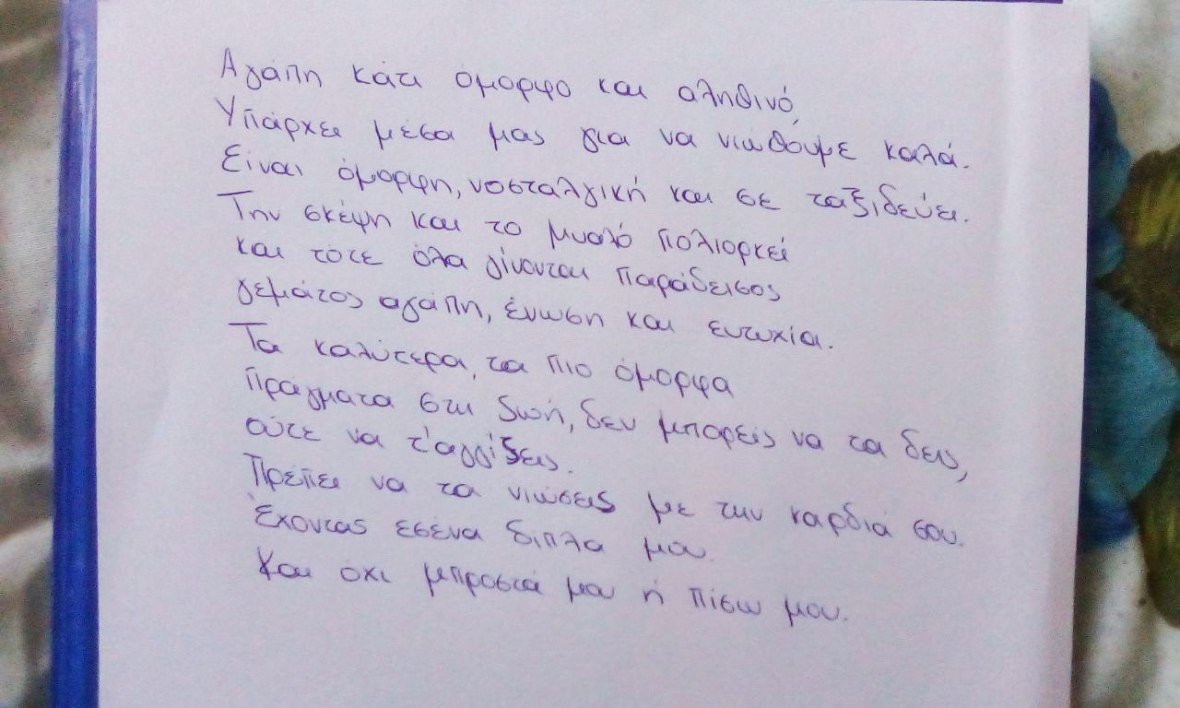 Αγάπη κάτι όμορφο και αληθινό,
Υπάρχει μέσα μας για να νιώθουμε καλά.
Είναι όμορφη, νοσταλγική και σε ταξιδεύει.
Την σκέψη και το μυαλό πολιορκεί
και τότε όλα γίνονται παράδεισος
γεμάτος αγάπη, ένωση και ευτυχία.
Τα καλύτερα, τα πιο όμορφα
πράγματα στη ζωή, δεν μπορείς να τα δεις,
ούτε να τ'αγγίξεις.
Πρέπει να τα νιώσεις με την καρδιά σου.
Έχοντας εσένα δίπλα μου.
Και όχι μπροστά μου ή πίσω μου.